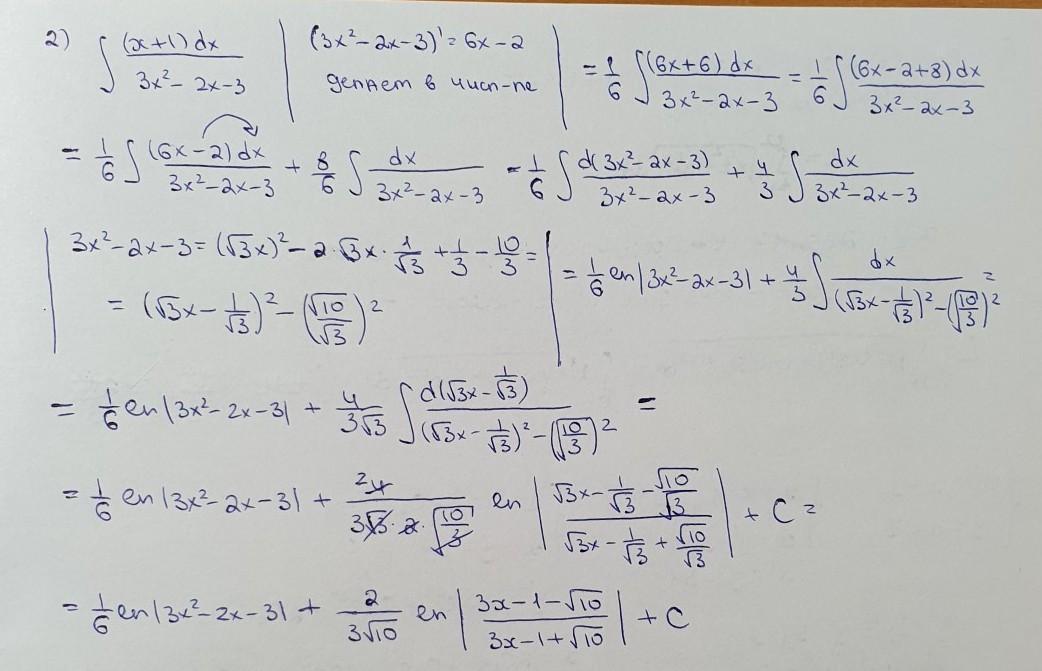 2) ∫ (x+1)dx / (3x² - 2x - 3) | (3x² - 2x - 3)' = 6x - 2 делаем в числ-ле | = 1/6 ∫ (6x+6)dx / (3x² - 2x - 3) = 1/6 ∫ (6x - 2 + 8)dx / (3x² - 2x - 3)
= 1/6 ∫ (6x - 2)dx / (3x² - 2x - 3) + 8/6 ∫ dx / (3x² - 2x - 3) = 1/6 ∫ d(3x² - 2x - 3) / (3x² - 2x - 3) + 4/3 ∫ dx / (3x² - 2x - 3)
| 3x² - 2x - 3 = (√3x)² - 2·√3x · 1/√3 + 1/3 - 10/3 =
= (√3x - 1/√3)² - (√10/√3)² | = 1/6 ln|3x² - 2x - 3| + 4/3 ∫ dx / ((√3x - 1/√3)² - (√(10/3))²) =
= 1/6 ln|3x² - 2x - 3| + 4/(3√3) ∫ d(√3x - 1/√3) / ((√3x - 1/√3)² - (√(10/3))²) =
= 1/6 ln|3x² - 2x - 3| + 2 4/(3√3 · 2 · √(10/3)) ln |(√3x - 1/√3 - √10/√3) / (√3x - 1/√3 + √10/√3)| + C =
= 1/6 ln|3x² - 2x - 3| + 2/(3√10) ln |(3x - 1 - √10) / (3x - 1 + √10)| + C